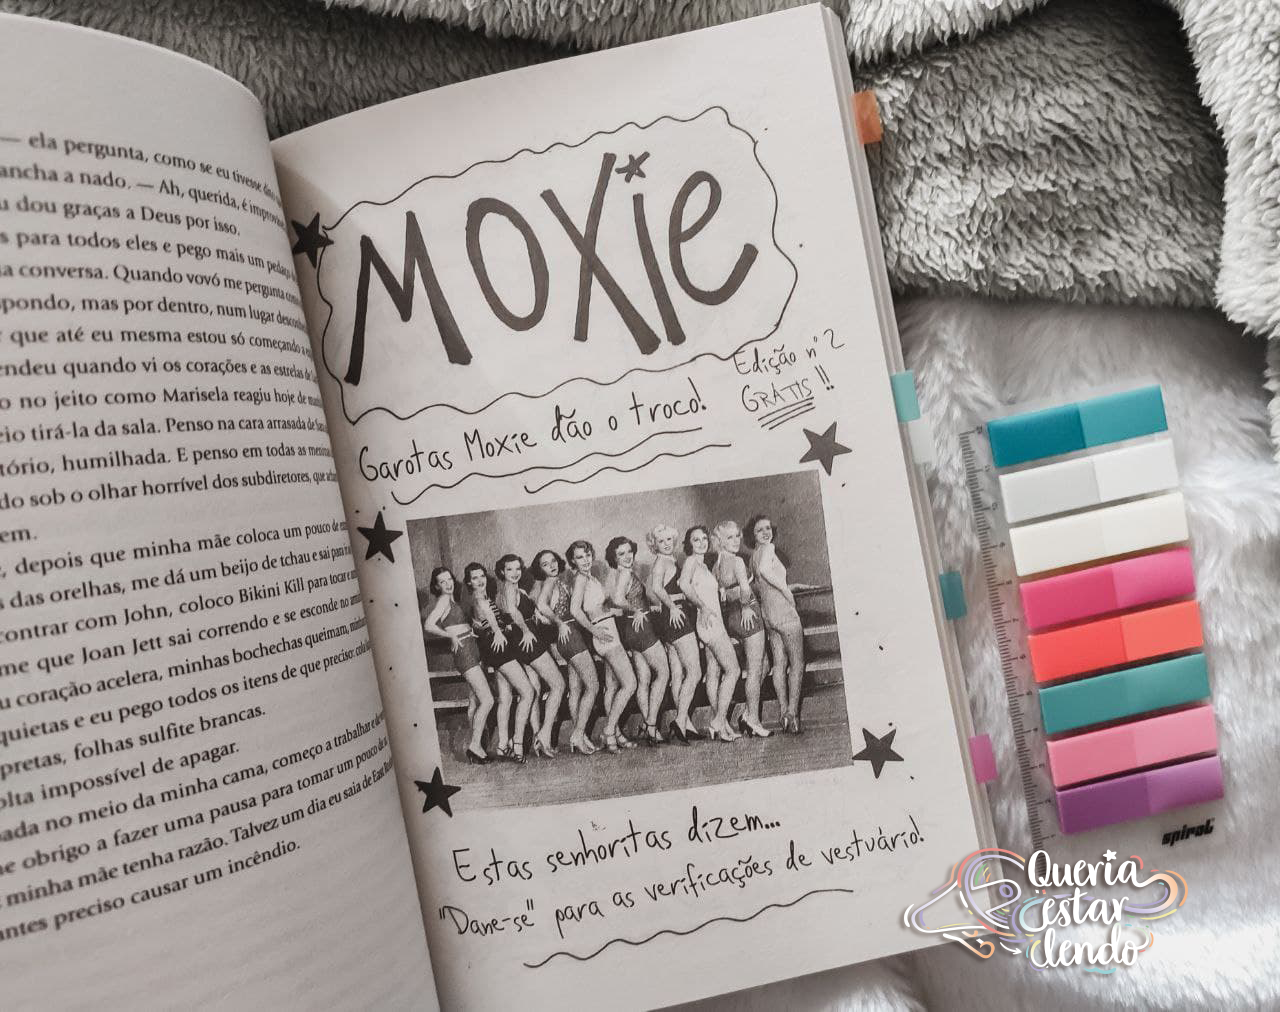 — ela pergunta, como se eu tivesse
ancha a nado. — Ah, querida, é
u dou graças a Deus por isso.
s para todos eles e pego mais um pedaço
sa conversa. Quando vovó me pergunta
spondo, mas por dentro, num lugar
que até eu mesma estou só começando a
endeu quando vi os corações e as estrelas de
o no jeito como Marisela reagiu hoje de
io tirá-la da sala. Penso na cara arrasada de
tório, humilhada. E penso em todas as
do sob o olhar horrível dos subdiretores, que
em.
, depois que minha mãe coloca um pouco de
s das orelhas, me dá um beijo de tchau e sai para
contrar com John, coloco Bikini Kill para tocar e
me que Joan Jett sai correndo e se esconde no
u coração acelera, minhas bochechas queimam,
quietas e eu pego todos os itens de que preciso:
pretas, folhas sulfite brancas.
olta impossível de apagar.
ada no meio da minha cama, começo a trabalhar e
me obrigo a fazer uma pausa para tomar um pouco de
minha mãe tenha razão. Talvez um dia eu saia de East
antes preciso causar um incêndio.
MOXie
Edição nº 2
GRÁTIS!!
Garotas Moxie dão o troco!
Estas senhoritas dizem...
"Dane-se" para as verificações de vestuário!
spiral
Queria
estar
lendo